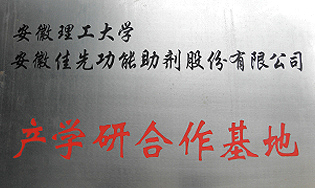 安徽理工大学
安徽佳先功能助剂股份有限公司
产学研合作基地